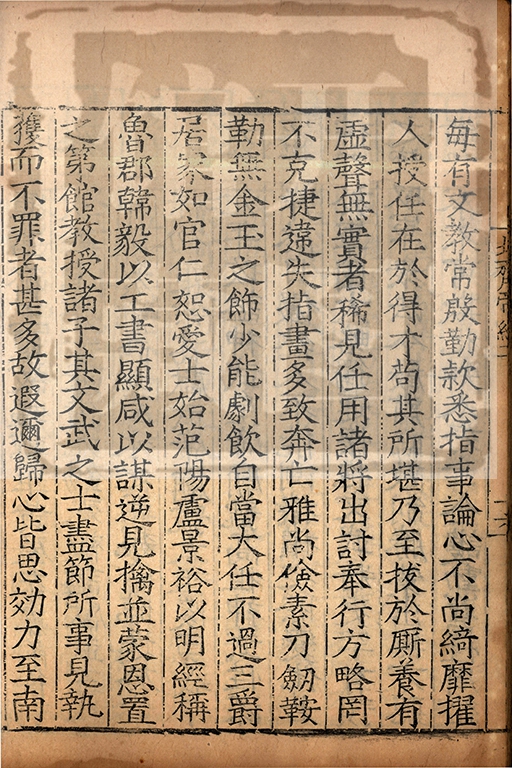 每有文教常殷勤款悉指事論心不尚綺靡擢
人授任在於得才苟其所堪乃至拔於厮養有
虛聲無實者稀見任用諸將出討奉行方略罔
不克捷違失指畫多致奔亡雅尚儉素刀劒鞍
勒無金玉之飾少能劇飲自當大任不過三爵
居家如官仁恕愛士始范陽盧景裕以明經稱
魯郡韓毅以工書顯咸以謀逆見擒並蒙恩置
之第館教授諸子其文武之士盡節所事見執
獲而不罪者甚多故遐邇歸心皆思効力至南